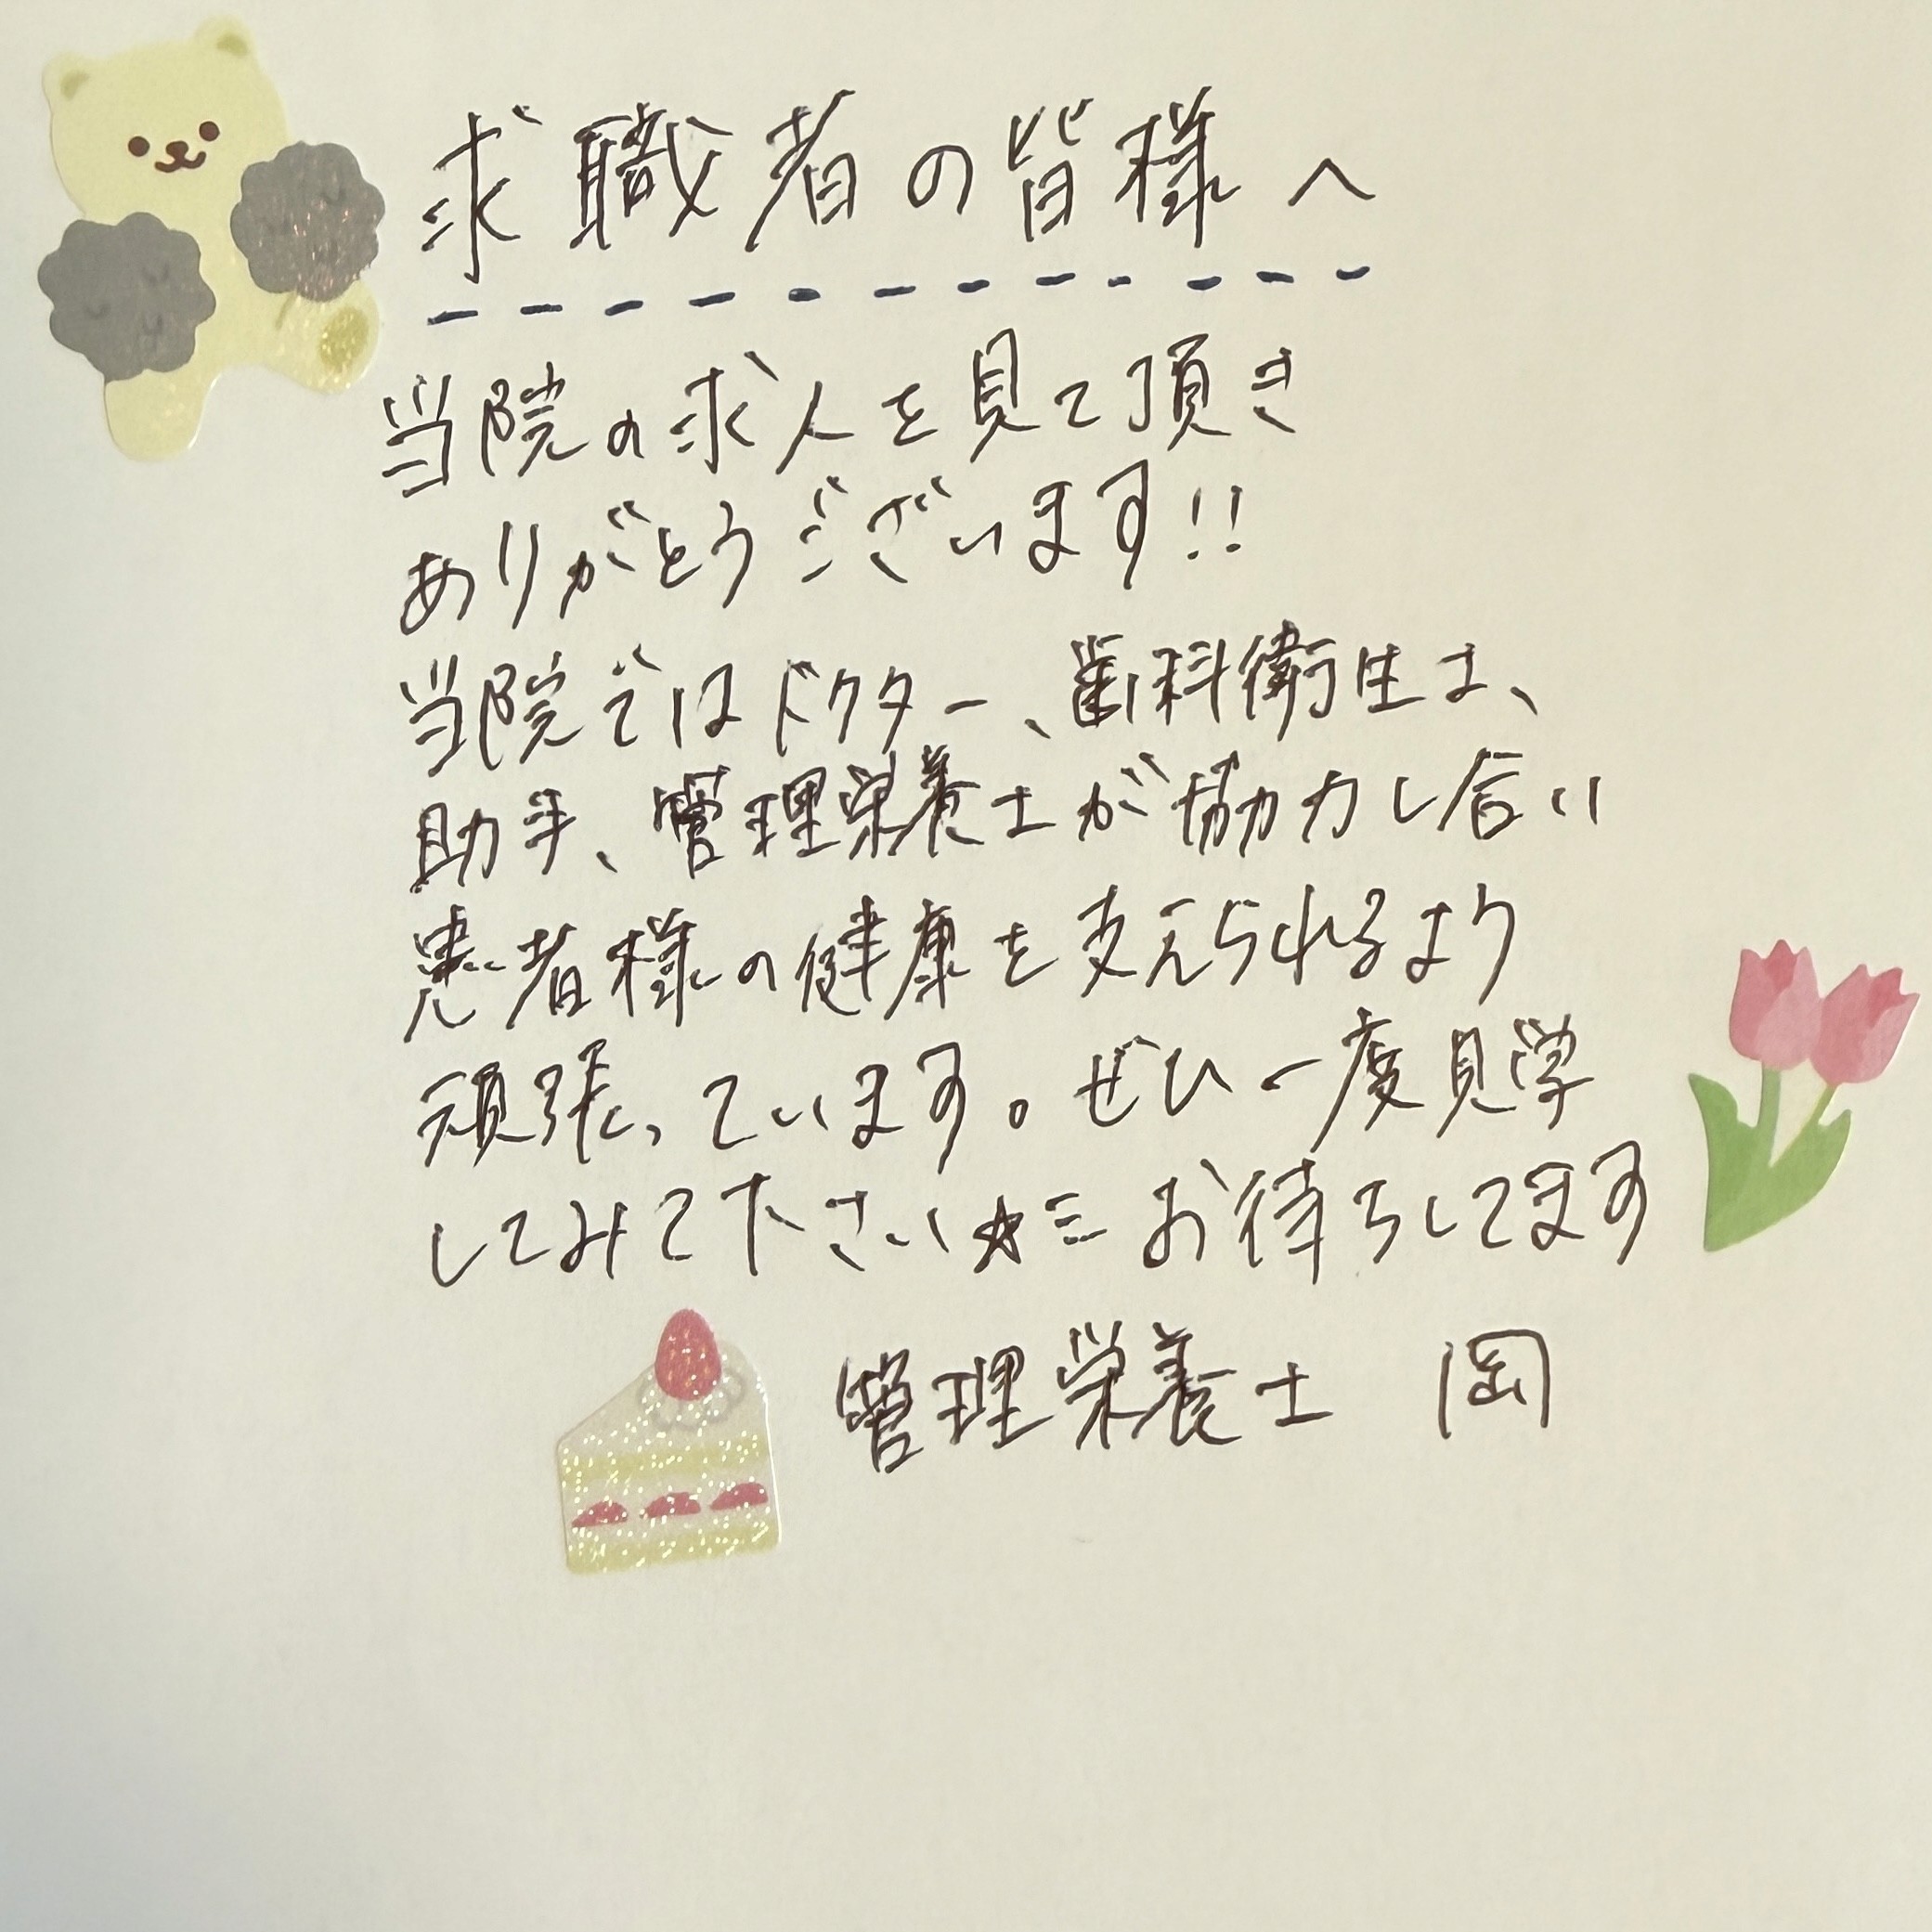 求職者の皆様へ
当院の求人を見て頂き
ありがとうございます!!
当院ではドクター、歯科衛生士、
助手、管理栄養士が協力し合い
患者様の健康を支えられるよう
頑張っています。ぜひ一度見学
してみて下さい☆ミ お待ちしてます
管理栄養士 岡